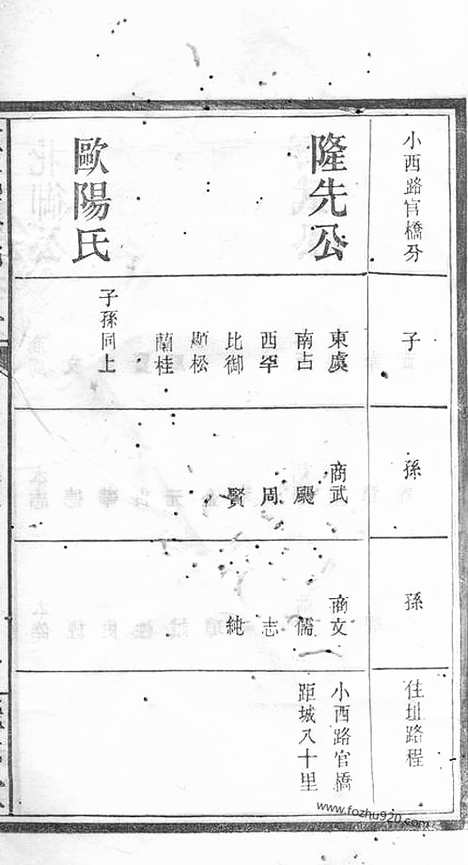 小西路官橋分
子
孫
孫
住址路程
隆先公
東虞
南占
西罕
比御
顯松
蘭桂
商武
颺
周
賢
商文
儒
志
純
小西路官橋
距城八十里
歐陽氏
子孫同上
www.fozhu920.com